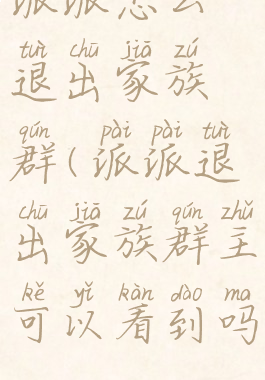 派派怎么
tuì chū jiā zú
退出家族
qún pài pài tuì
群(派派退
chū jiā zú qún zhǔ
出家族群主
kě yǐ kàn dào ma
可以看到吗